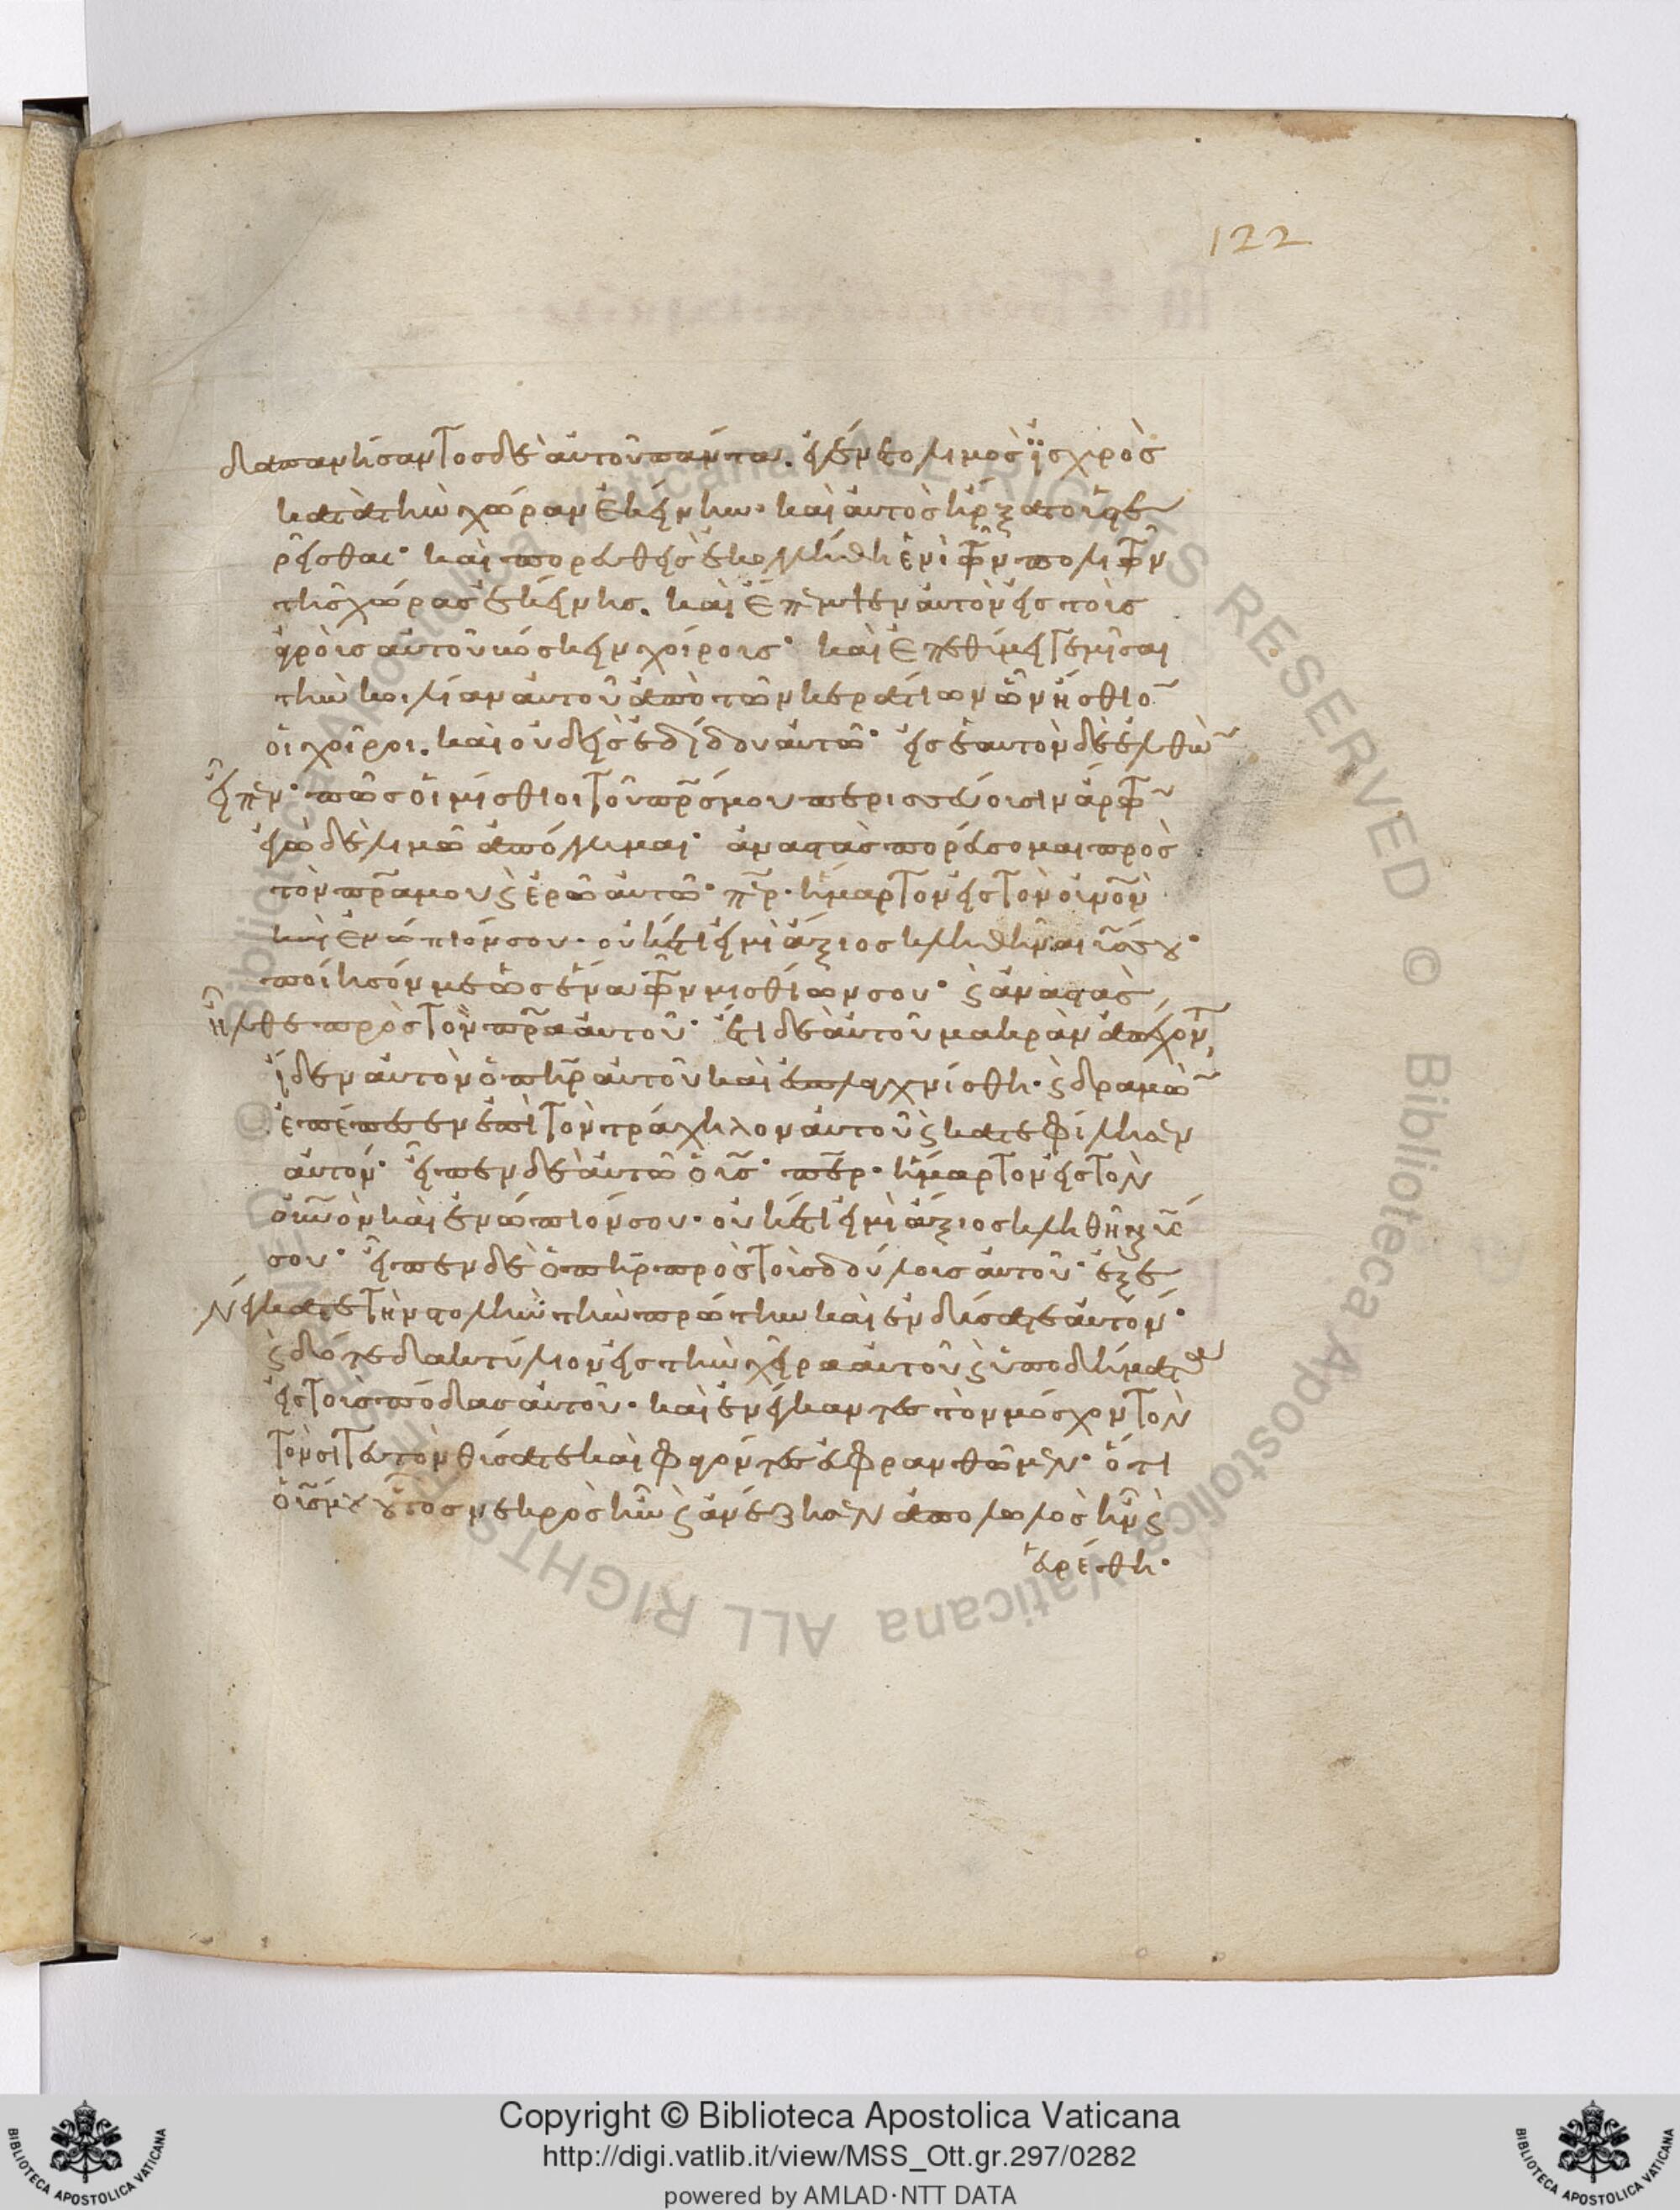 122
δαπανήσαντος δὲ ἀυτοῦ πάντα. ἐγένετο λιμὸς ἰσχυρὸς
κατὰ τὴν χώραν ἐκείνην. καὶ ἀυτὸς ἤρξατο ὑστε
ρεῖσθαι· καὶ πορευθεὶς ἐκολλήθη ἑνὶ τῶν πολιτῶν
τῆς χώρας ἐκείνης. καὶ ἔπεμψεν ἀυτὸν εἰς τοὺς
ἀγροὺς ἀυτοῦ βόσκειν χοίρους· καὶ ἐπεθύμει γεμίσαι
τὴν κοιλίαν ἀυτοῦ ἀπὸ τῶν κερατίων ὧν ἤσθιο
οἱ χοῖροι. καὶ οὐδεὶς ἐδίδου ἀυτῶ· εἰς ἑαυτὸν δὲ ἐλθὼ
εἶπεν· πόσοι μίσθιοι τοῦ πρσ μου περισσεύουσιν ἄρτω
ἐγὼ δὲ λιμῶ ἀπόλλυμαι· ἀναστὰς πορεύσομαι πρὸς
τὸν πρα μου ϗ ἐρῶ ἀυτῶ· περ. ἥμαρτον εἰς τὸν οὐνον
καὶ ἐνώπιόν σου. οὐκέτι εἰμὶ ἄξιος κληθῆναι υσ σου·
ποίησόν με ὡς ἕνα τῶν μισθίων σου· ϗ ἀναστὰς
ἦλθε πρὸς τὸν πρα ἀυτοῦ· ἔτι δὲ ἀυτοῦ μακρὰν ἀπέχοντ
ἴδεν ἀυτὸν ὁ πηρ ἀυτοῦ καὶ ἐσπλαγχνίσθη. ϗ δραμὼ
ἐπέπεσεν ἐπὶ τὸν τράχηλον ἀυτοῦ ϗ κατεφίλησεν
ἀυτόν· εἶπεν δὲ ἀυτῶ ὁ υσ· περ. ἥμαρτον εἰς τὸν
οὐνον καὶ ἐνώπιόν σου. οὐκέτι εἰμὶ ἄξιος κληθῆναι υσ
σου· εἶπεν δὲ ὁ πηρ πρὸς τοὺς δούλους ἀυτοῦ· ἐξε
νέγκατε τὴν στολὴν τὴν πρώτην καὶ ἐνδύσατε ἀυτόν·
ϗ δότε δακτύλιον εἰς τὴν χεῖρα ἀυτοῦ ϗ ὑποδήματα
εἰς τοὺς πόδας ἀυτοῦ. καὶ ἐνέγκαντες τὸν μόσχον τὸν
τὸν σιτευτὸν θύσατε καὶ φαγόντες εὐφρανθῶμεν· ὅτι
ὁ υσ μου οὗτος νεκρὸς ἦν ϗ ἀνέζησεν ἀπολωλὸς ἦν ϗ
εὑρέθη.
Copyright © Biblioteca Apostolica Vaticana
http://digi.vatlib.it/view/MSS_Ott.gr.297/0282
powered by AMLAD·NTT DATA